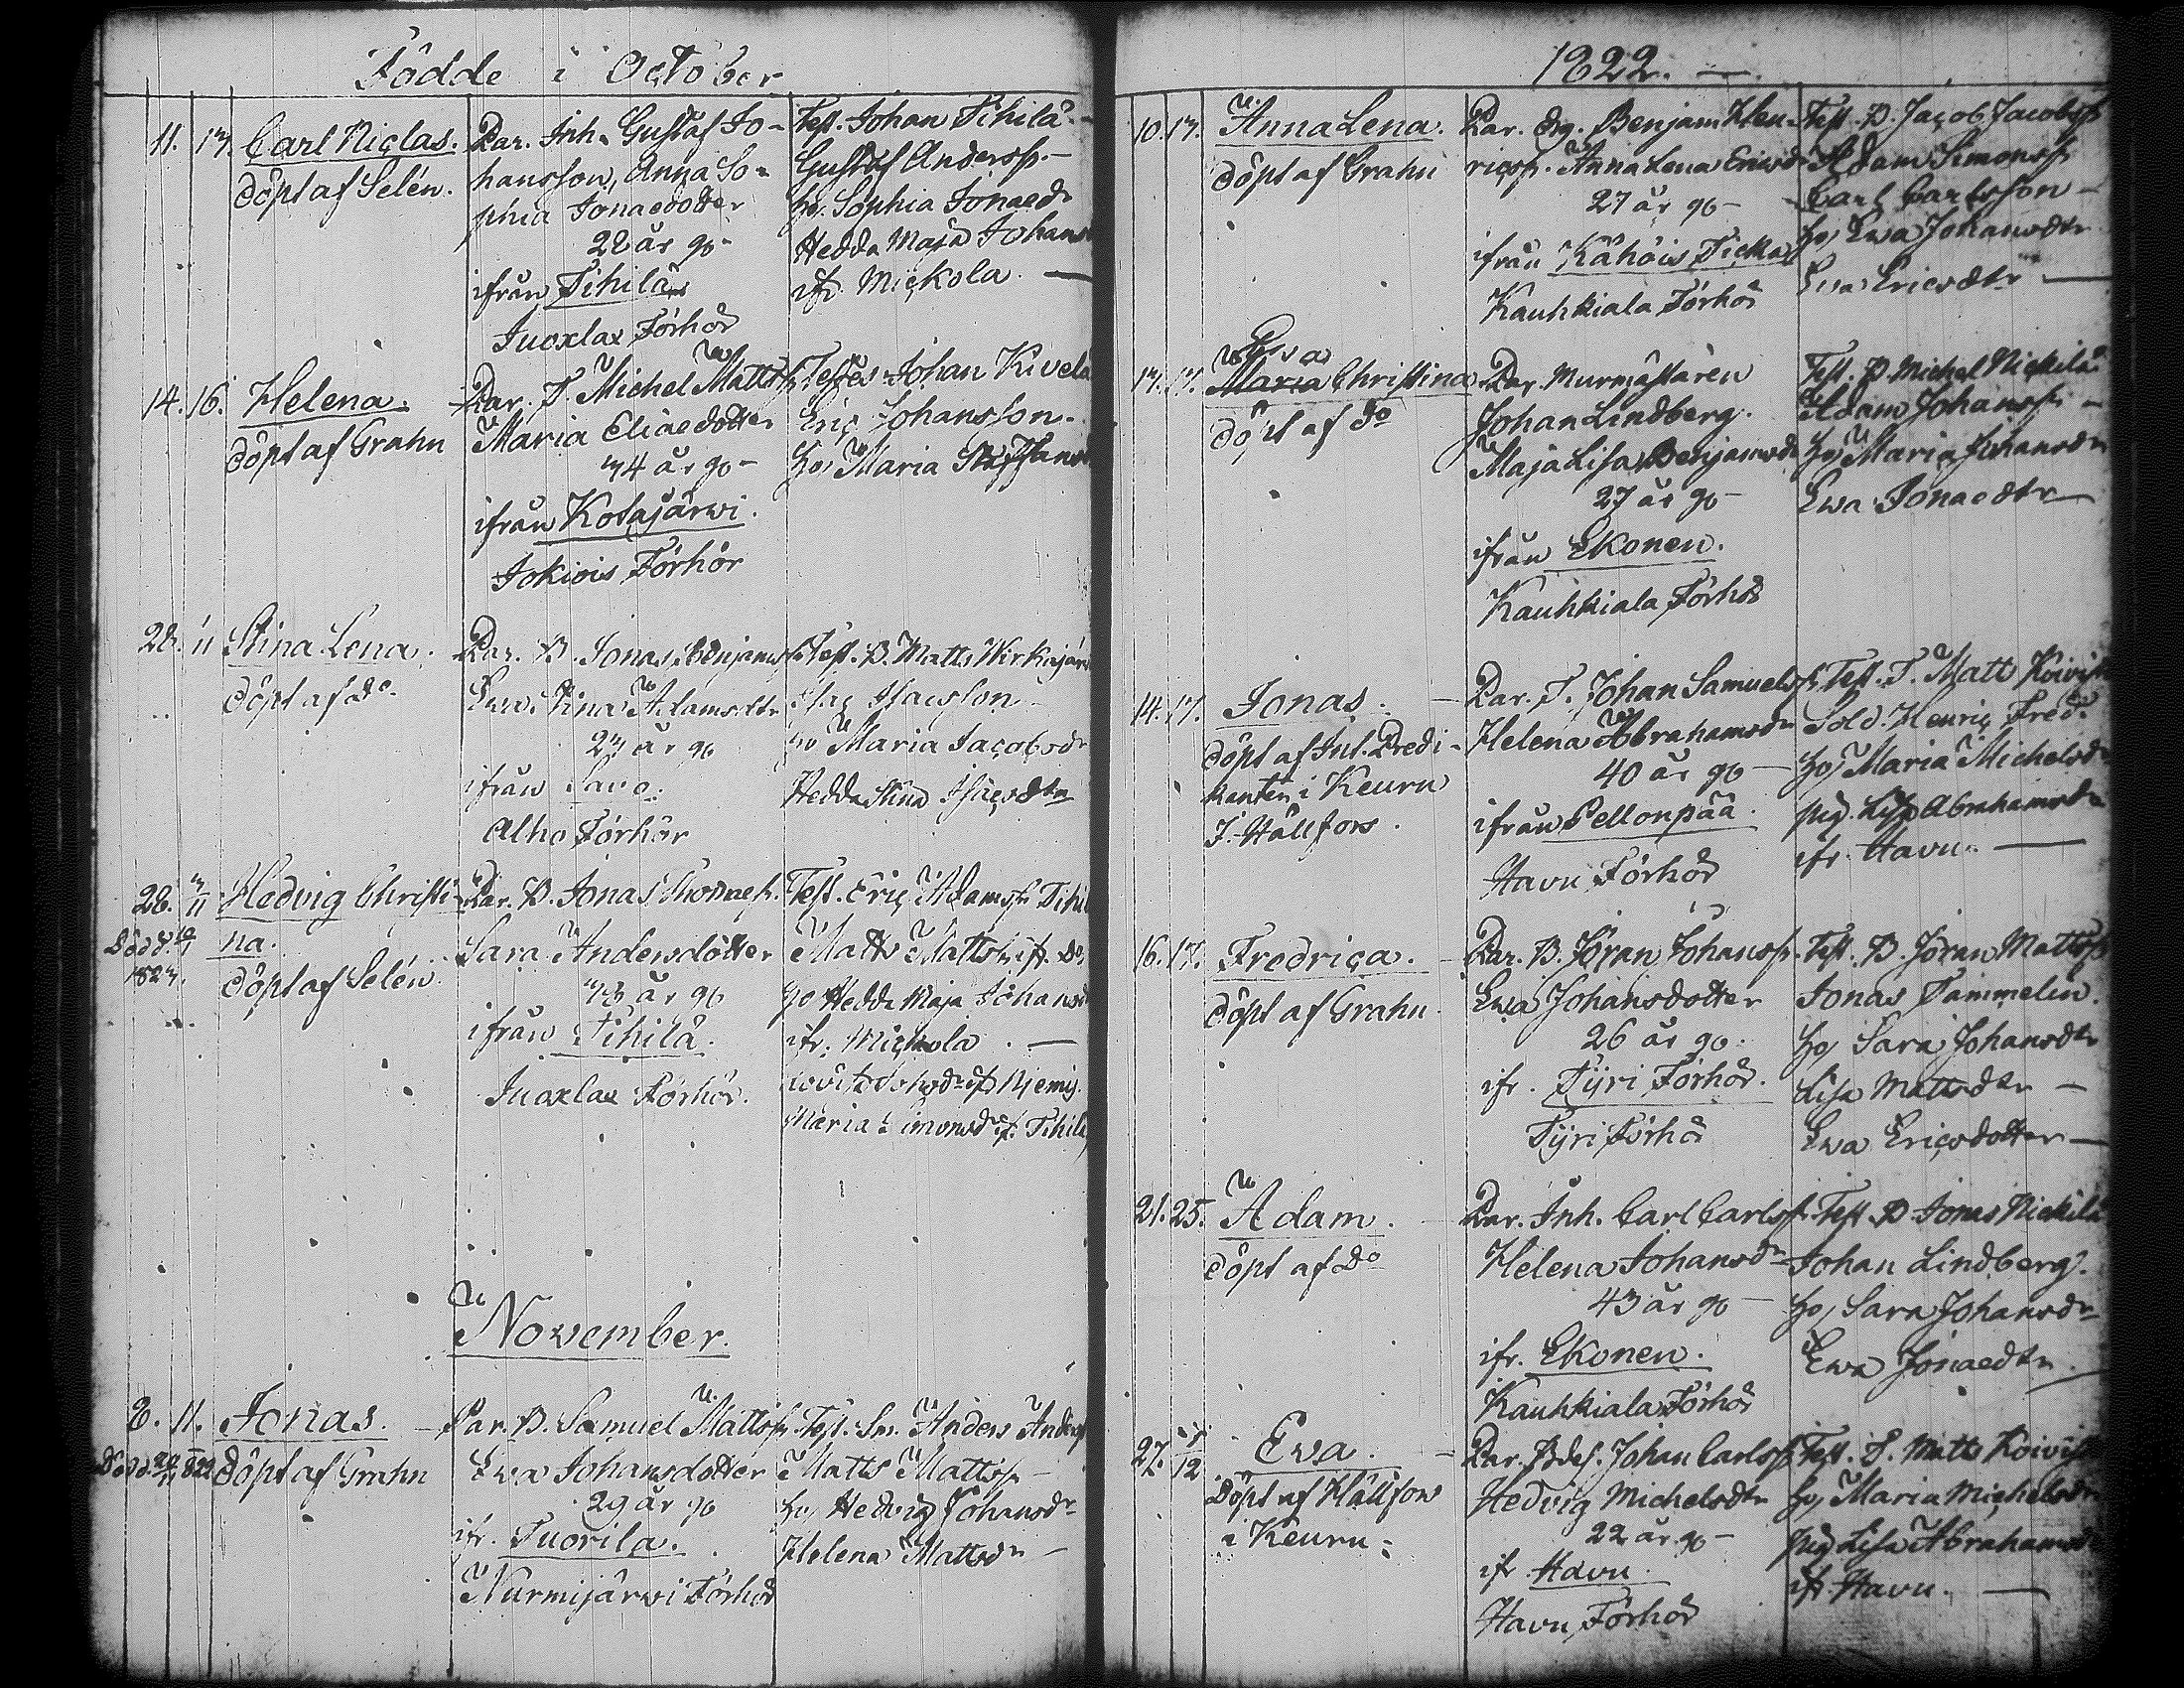 Födde i October
11. 13. Carl Niclas.
döpt af Selén.
Par. Inh. Gustaf Jo-
hansson, Anna So-
phia Jonaedotter
22 år gl-
ifrån Tihilä
Juoxlax Förhör
Test. Johan Tihilä
Gustaf Anderss. -
Hu. Sophia Jonaedr
Hedda Maja Johans
ifr. Mickola. —
14. 16. Helena.
döpt af Grahn
Par. T. Michel Matts
Maria Eliaedotter
34 år gl-
ifrån Kotajärwi.
Jokiois Förhör
Testes Johan Kivelä
Eric Johansson.
Hu. Maria Staffans
28. 11 Stina Lena.
döpt af do
Par. B. Jonas Benjams
Ewa Stina Adamsdtr
23 år gl
ifrån Savo.
Alho Förhör
Test. B. Matts Wirkajär
Isac Isacsson -
Hu Maria Jacobsdr
Hedda Stina Isacsdtr
28. 3/11 Hedvig Christi-
na.
Död d.
1823.
döpt af Selén.
Par. B. Jonas Thomaes.
Sara Andersdotter
43 år gl
ifrån Tihilä.
Juoxlax Förhör.
Test. Eric Adamss. Tihil
Matts Mattss. ifr. do
Hu Hedda Maja Johansd
ifr. Mickola. —
Maria Simonsdr if. Tihilä
November.
8. 11. Jonas.
döpt af Grahn
Par. B. Samuel Mattss.
Ewa Johansdotter
29 år gl
ifr. Tuorila.
Nurmijärwi Förhör
Test. Sn. Anders Anders
Matts Mattss. -
Hu Hedvig Johansdr
Helena Mattsdr -
1822. —
10. 13. Anna Lena.
döpt af Grahn
Par. Dg. Benjam. Hen-
ricss. Anna Lena Ericsd
27 år gl-
ifrån Kähöis Ticka
Kauhkiala Förhör
Test. B. Jacob Jacobss
Adam Simonss.
Carl Carlsson -
Hu Ewa Johansdtr
Ewa Ericsdtr —
13. 17. Ewa
Maria Christina
döpt af do
Par. Murmästaren
Johan Lindberg.
Maja Lisa Benjamsdr
27 år gl-
ifrån Ekonen.
Kauhkiala Förhör
Test. B. Michel Nickilä
Adam Johanss. -
Hu Maria Johansdr
Ewa Jonaedtr —
14. 17. Jonas.
döpt af Int. Predi-
kanten i Keuru
J. Hällfors.
Par. T. Johan Samuelss.
Helena Abrahamsdr
40 år gl -
ifrån Pellonpää.
Havu Förhör
Test. T. Matt Koivist
Sold. Henric Fred.
Hu Maria Michelsdr
pig. Lisa Abrahamsdr
ifr. Havu. —
16. 17. Fredrica.
döpt af Grahn.
Par. B. Jöran Johanss.
Ewa Johansdotter
26 år gl.
ifr. Tyri Förhör.
Tyri Förhör
Test. B. Jöran Mattss
Jonas Tammelin.
Hu Sara Johansdtr
Lisa Mattsdtr -
Ewa Ericsdotter —
21. 25. Adam.
döpt af Do
Par. Inh. Carl Carlss.
Helena Johansdr
43 år gl -
ifr. Ekonen.
Kauhkiala Förhör
Test. B. Jonas Nickilä
Johan Lindberg.
Hu Sara Johansdr
Ewa Jonaedtr. —
27. Ewa.
Döpt af Hällfors
i Keuru.
Par. Johan Carlss
Hedvig Michelsdtr
22 år gl -
ifr Havu.
Havu Förhör
Test. T. Matts Koivist
Hu Maria Michelsdr
pig Lisa Abrahamsdr
ifr Havu. —